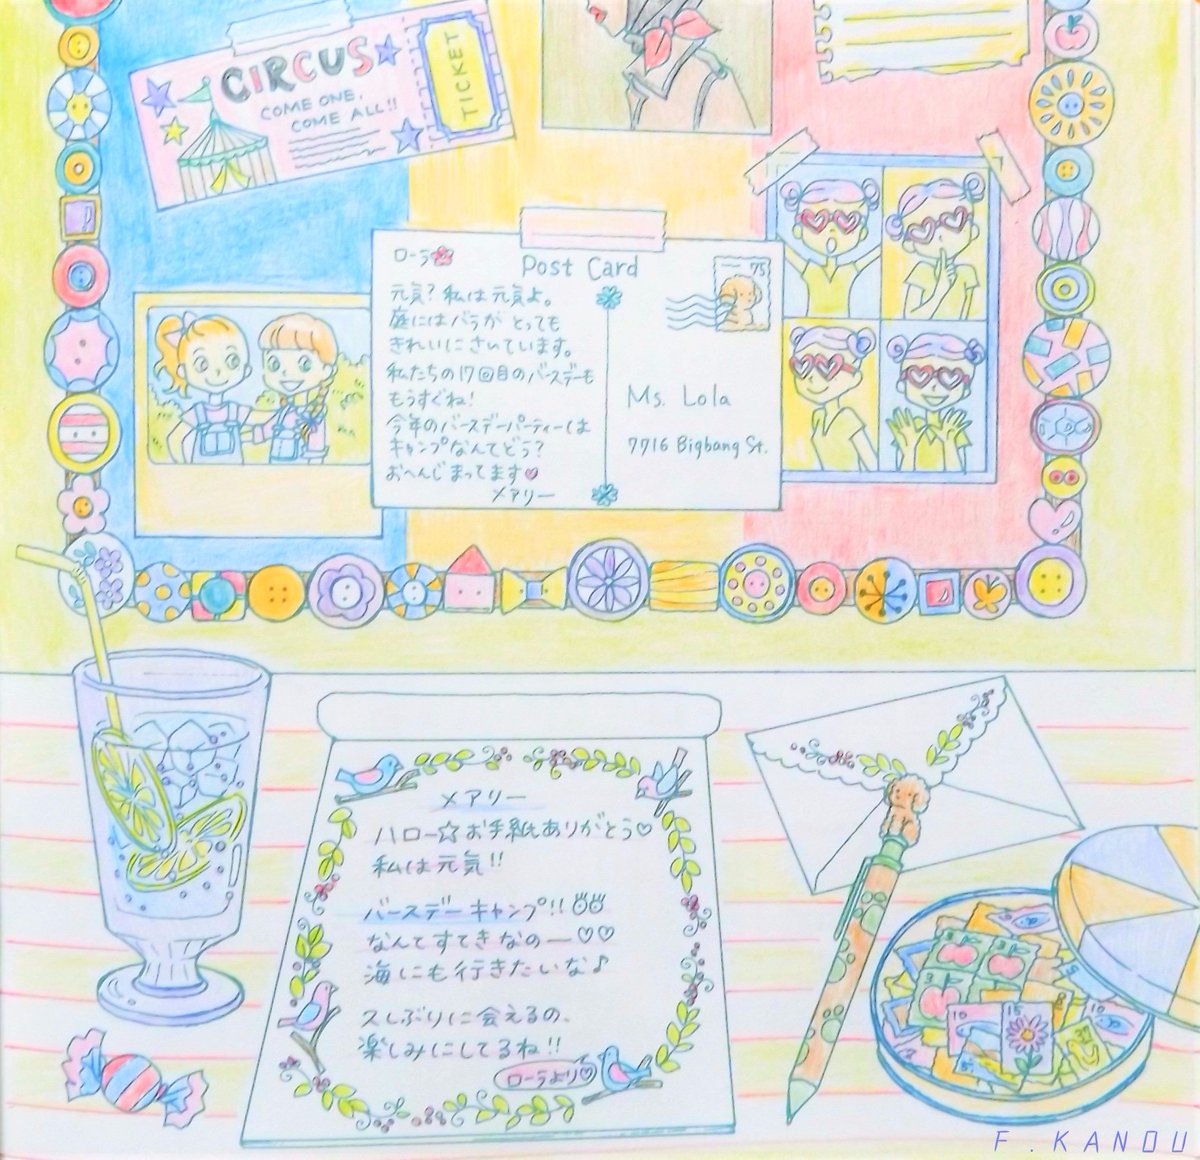 CIRCUS
COME ONE,
COME ALL!!
TICKET
ローラ
元気?私は元気よ。
庭にはバラがとっても
きれいにさいています。
私たちの17回目のバースデーも
もうすぐね!
今年のバースデーパーティーは
キャンプなんてどう?
おへんじまってます♡
メアリー
Post Card
75
Ms. Lola
7716 Bigbang St.
メアリー
ハロー☆お手紙ありがとう♡
私は元気!!
バースデーキャンプ!!
なんてすてきなのー♡♡
海にも行きたいな♪
久しぶりに会えるの、
楽しみにしてるね!!
ローラより♡
15
10
F.KANOU